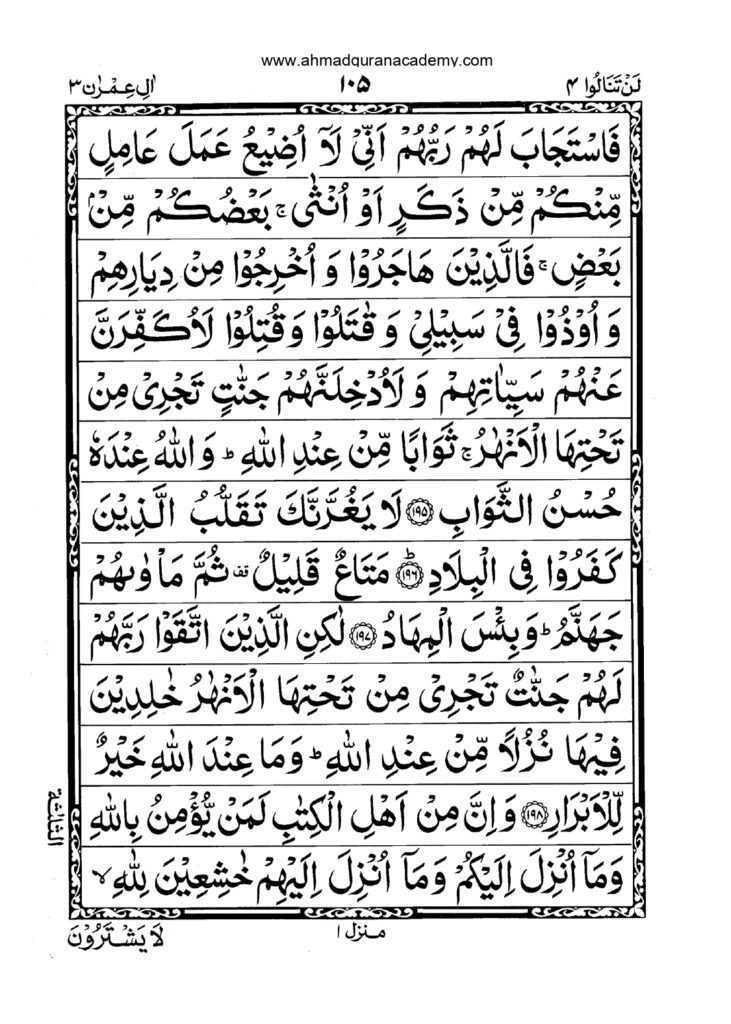 www.ahmadquranacademy.com
لَنْ تَنَالُوا ۴
۱۰۵
اٰلِ عِمْرٰن ۳
فَاسْتَجَابَ لَهُمْ رَبُّهُمْ اَنِّیْ لَاۤ اُضِیْعُ عَمَلَ عَامِلٍ
مِّنْكُمْ مِّنْ ذَكَرٍ اَوْ اُنْثٰی ۚ بَعْضُكُمْ مِّنْۢ
بَعْضٍ ۚ فَالَّذِیْنَ هَاجَرُوْا وَ اُخْرِجُوْا مِنْ دِیَارِهِمْ
وَ اُوْذُوْا فِیْ سَبِیْلِیْ وَ قٰتَلُوْا وَ قُتِلُوْا لَاُكَفِّرَنَّ
عَنْهُمْ سَیِّاٰتِهِمْ وَ لَاُدْخِلَنَّهُمْ جَنّٰتٍ تَجْرِیْ مِنْ
تَحْتِهَا الْاَنْهٰرُ ۚ ثَوَابًا مِّنْ عِنْدِ اللّٰهِ ؕ وَ اللّٰهُ عِنْدَهٗ
حُسْنُ الثَّوَابِ ۱۹۵ لَا یَغُرَّنَّكَ تَقَلُّبُ الَّذِیْنَ
كَفَرُوْا فِی الْبِلَادِ ؕ ۱۹۶ مَتَاعٌ قَلِیْلٌ قف ثُمَّ مَاْوٰىهُمْ
جَهَنَّمُ ؕ وَ بِئْسَ الْمِهَادُ ۱۹۷ لٰكِنِ الَّذِیْنَ اتَّقَوْا رَبَّهُمْ
لَهُمْ جَنّٰتٌ تَجْرِیْ مِنْ تَحْتِهَا الْاَنْهٰرُ خٰلِدِیْنَ
فِیْهَا نُزُلًا مِّنْ عِنْدِ اللّٰهِ ؕ وَ مَا عِنْدَ اللّٰهِ خَیْرٌ
لِّلْاَبْرَارِ ۱۹۸ وَ اِنَّ مِنْ اَهْلِ الْكِتٰبِ لَمَنْ یُّؤْمِنُ بِاللّٰهِ
وَ مَاۤ اُنْزِلَ اِلَیْكُمْ وَ مَاۤ اُنْزِلَ اِلَیْهِمْ خٰشِعِیْنَ لِلّٰهِ ۙ
الثلثة
منزل ۱
لَا یَشْتَرُوْنَ